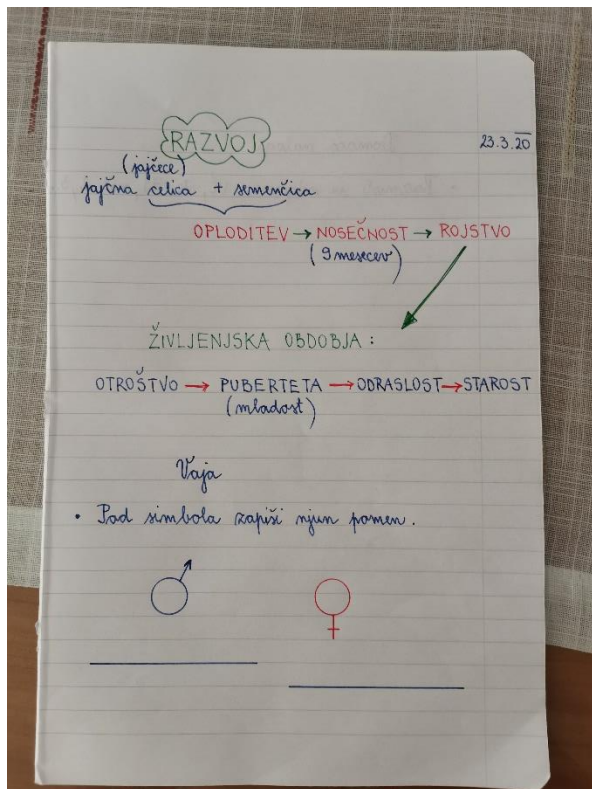 RAZVOJ
23.3.20
(jajčece)
jajčna celica + semenčica
OPLODITEV → NOSEČNOST → ROJSTVO
(9 mesecev)
ŽIVLJENJSKA OBDOBJA:
OTROŠTVO → PUBERTETA → ODRASLOST → STAROST
(mladost)
Vaja
• Pod simbola zapiši njun pomen.
♂ ♀